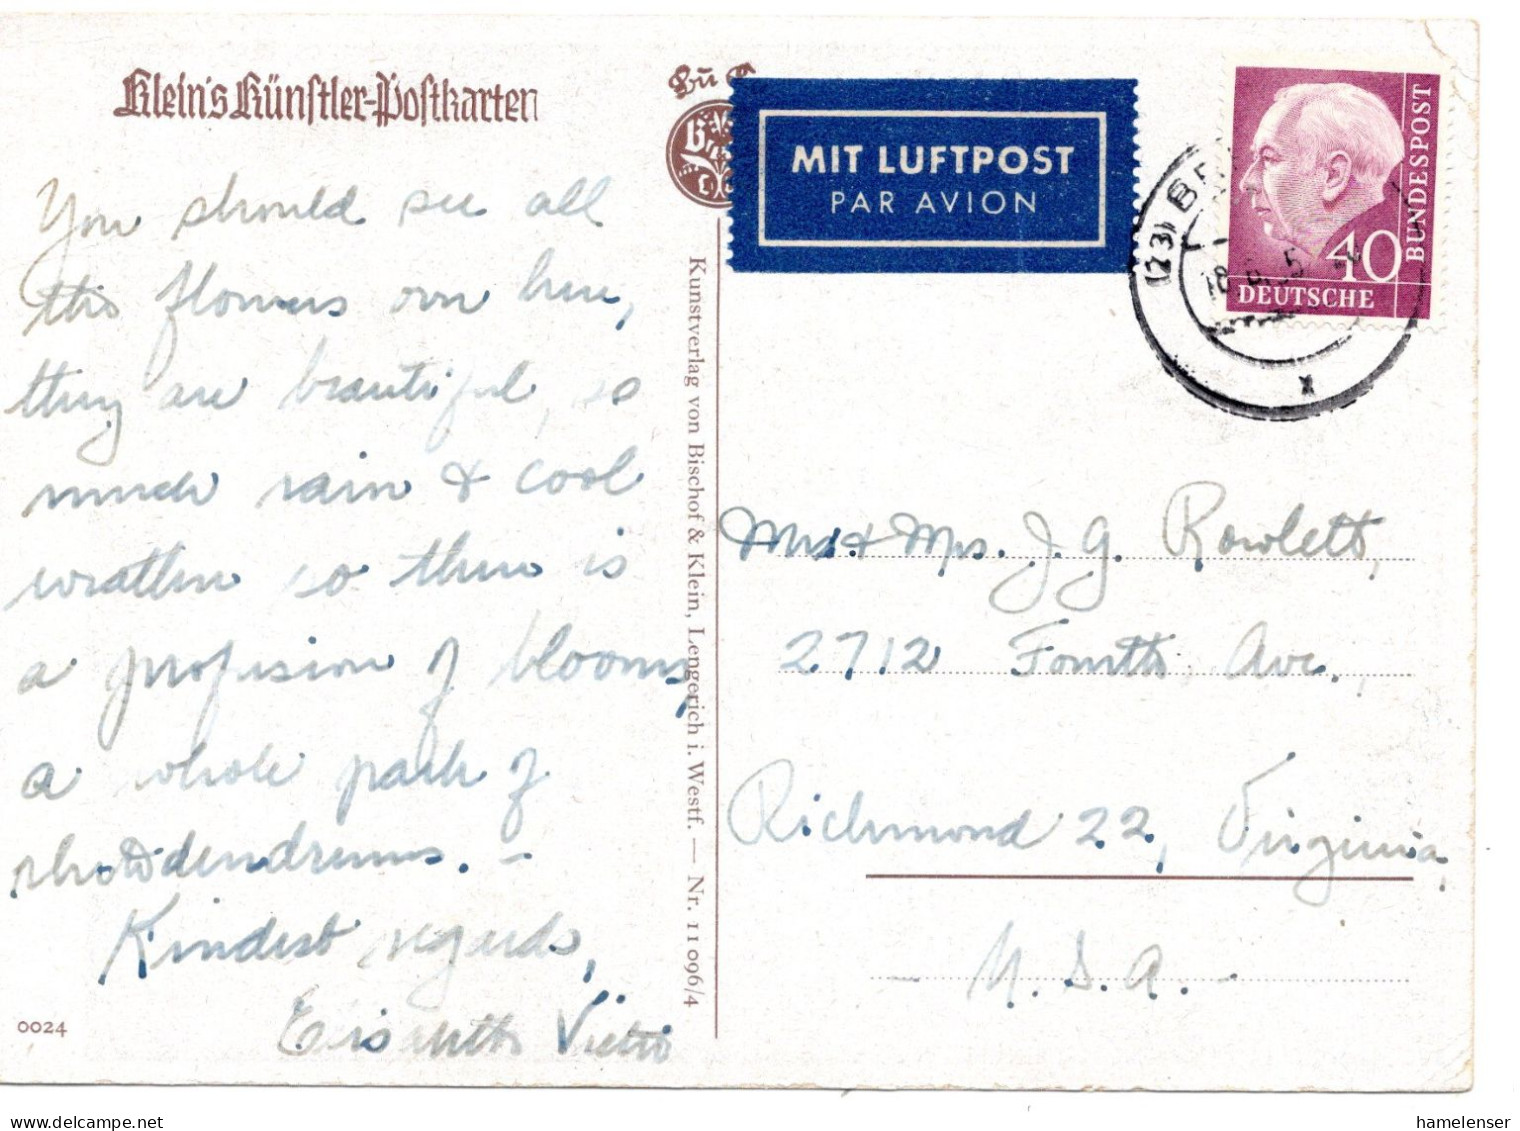 Klein's Künstler-Postkarten
You should see all
the flowers over here,
they are beautiful, so
much rain & cool
weather so there is
a profusion of blooms,
a whole park of
rhododendrums. –
Kindest regards,
0024
Kunstverlag von Bischof & Klein, Lengerich i. Westf. — Nr. 11 096/4
MIT LUFTPOST
PAR AVION
DEUTSCHE
BUNDESPOST
40
(23)
Mr. & Mrs. J. G. Rowlett,
2712 Fourth Ave.,
Richmond 22, Virginia,
– U. S. A. –
hamelenser